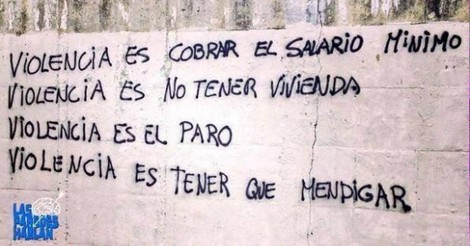 VIOLENCIA ES COBRAR EL SALARIO MINIMO
VIOLENCIA ES NO TENER VIVIENDA
VIOLENCIA ES EL PARO
VIOLENCIA ES TENER QUE MENDIGAR
LAS
PAREDES
HABLAN